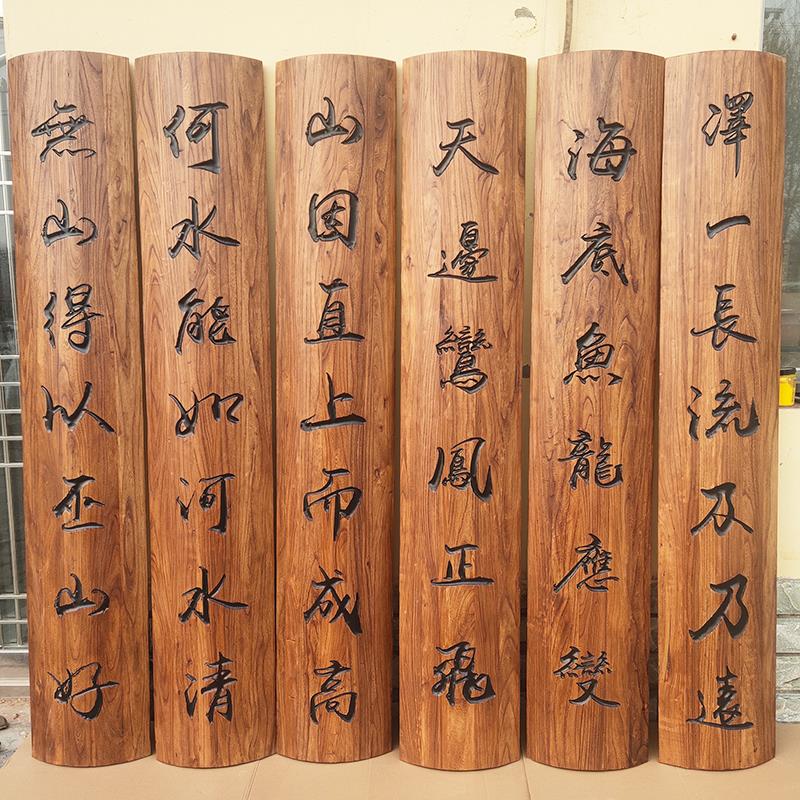 澤一長流及乃遠
海底魚龍應變
天邊鸞鳳正飛
山因直上而成高
何水能如河水清
無山得以丕山好